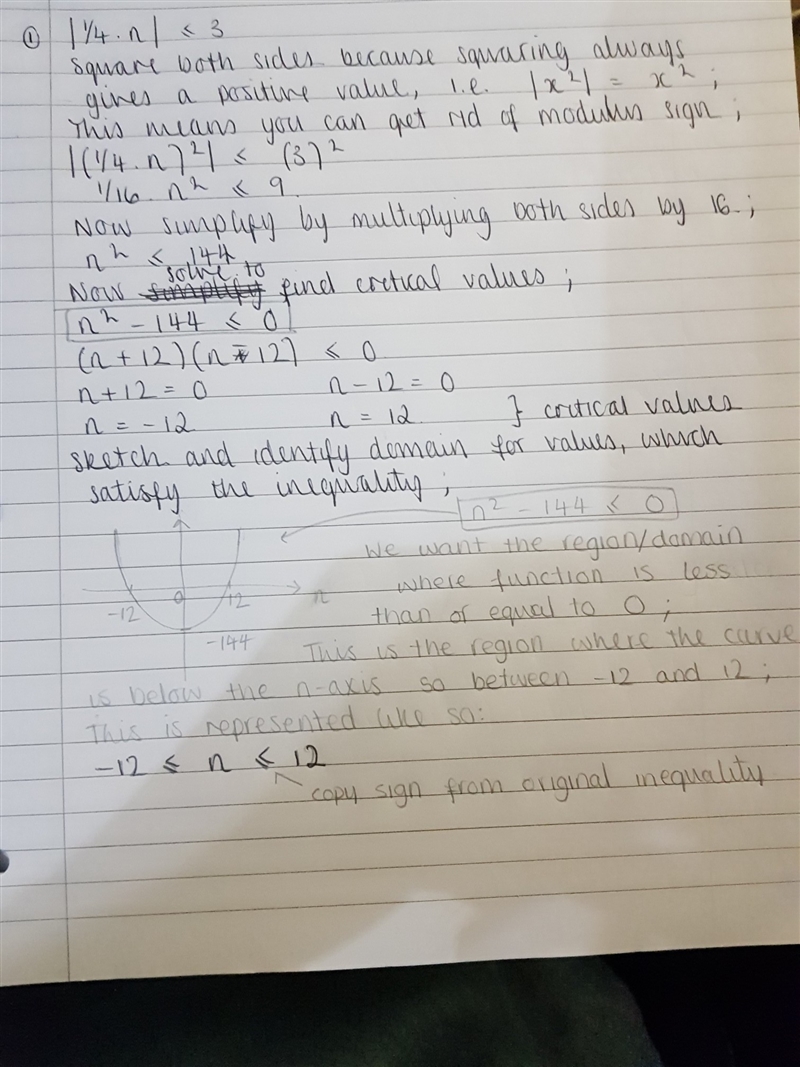 ① |1/4 . n| ⩽ 3
Square both sides because squaring always
gives a positive value, i.e. |x²| = x² ;
This means you can get rid of modulus sign ;
|(1/4 . n)²| ⩽ (3)²
1/16 . n² ⩽ 9
Now simplify by multiplying both sides by 16 ;
n² ⩽ 144
solve to
Now simplify find critical values ;
n² - 144 ⩽ 0
(n + 12)(n - 12) ⩽ 0
n + 12 = 0 n - 12 = 0
n = -12 n = 12 } critical values
sketch and identify domain for values, which
satisfy the inequality ;
n² - 144 ⩽ 0
We want the region/domain
-12 0 12 n where function is less
than or equal to 0 ;
-144 This is the region where the curve
is below the n-axis so between -12 and 12 ;
This is represented like so:
-12 ⩽ n ⩽ 12
copy sign from original inequality